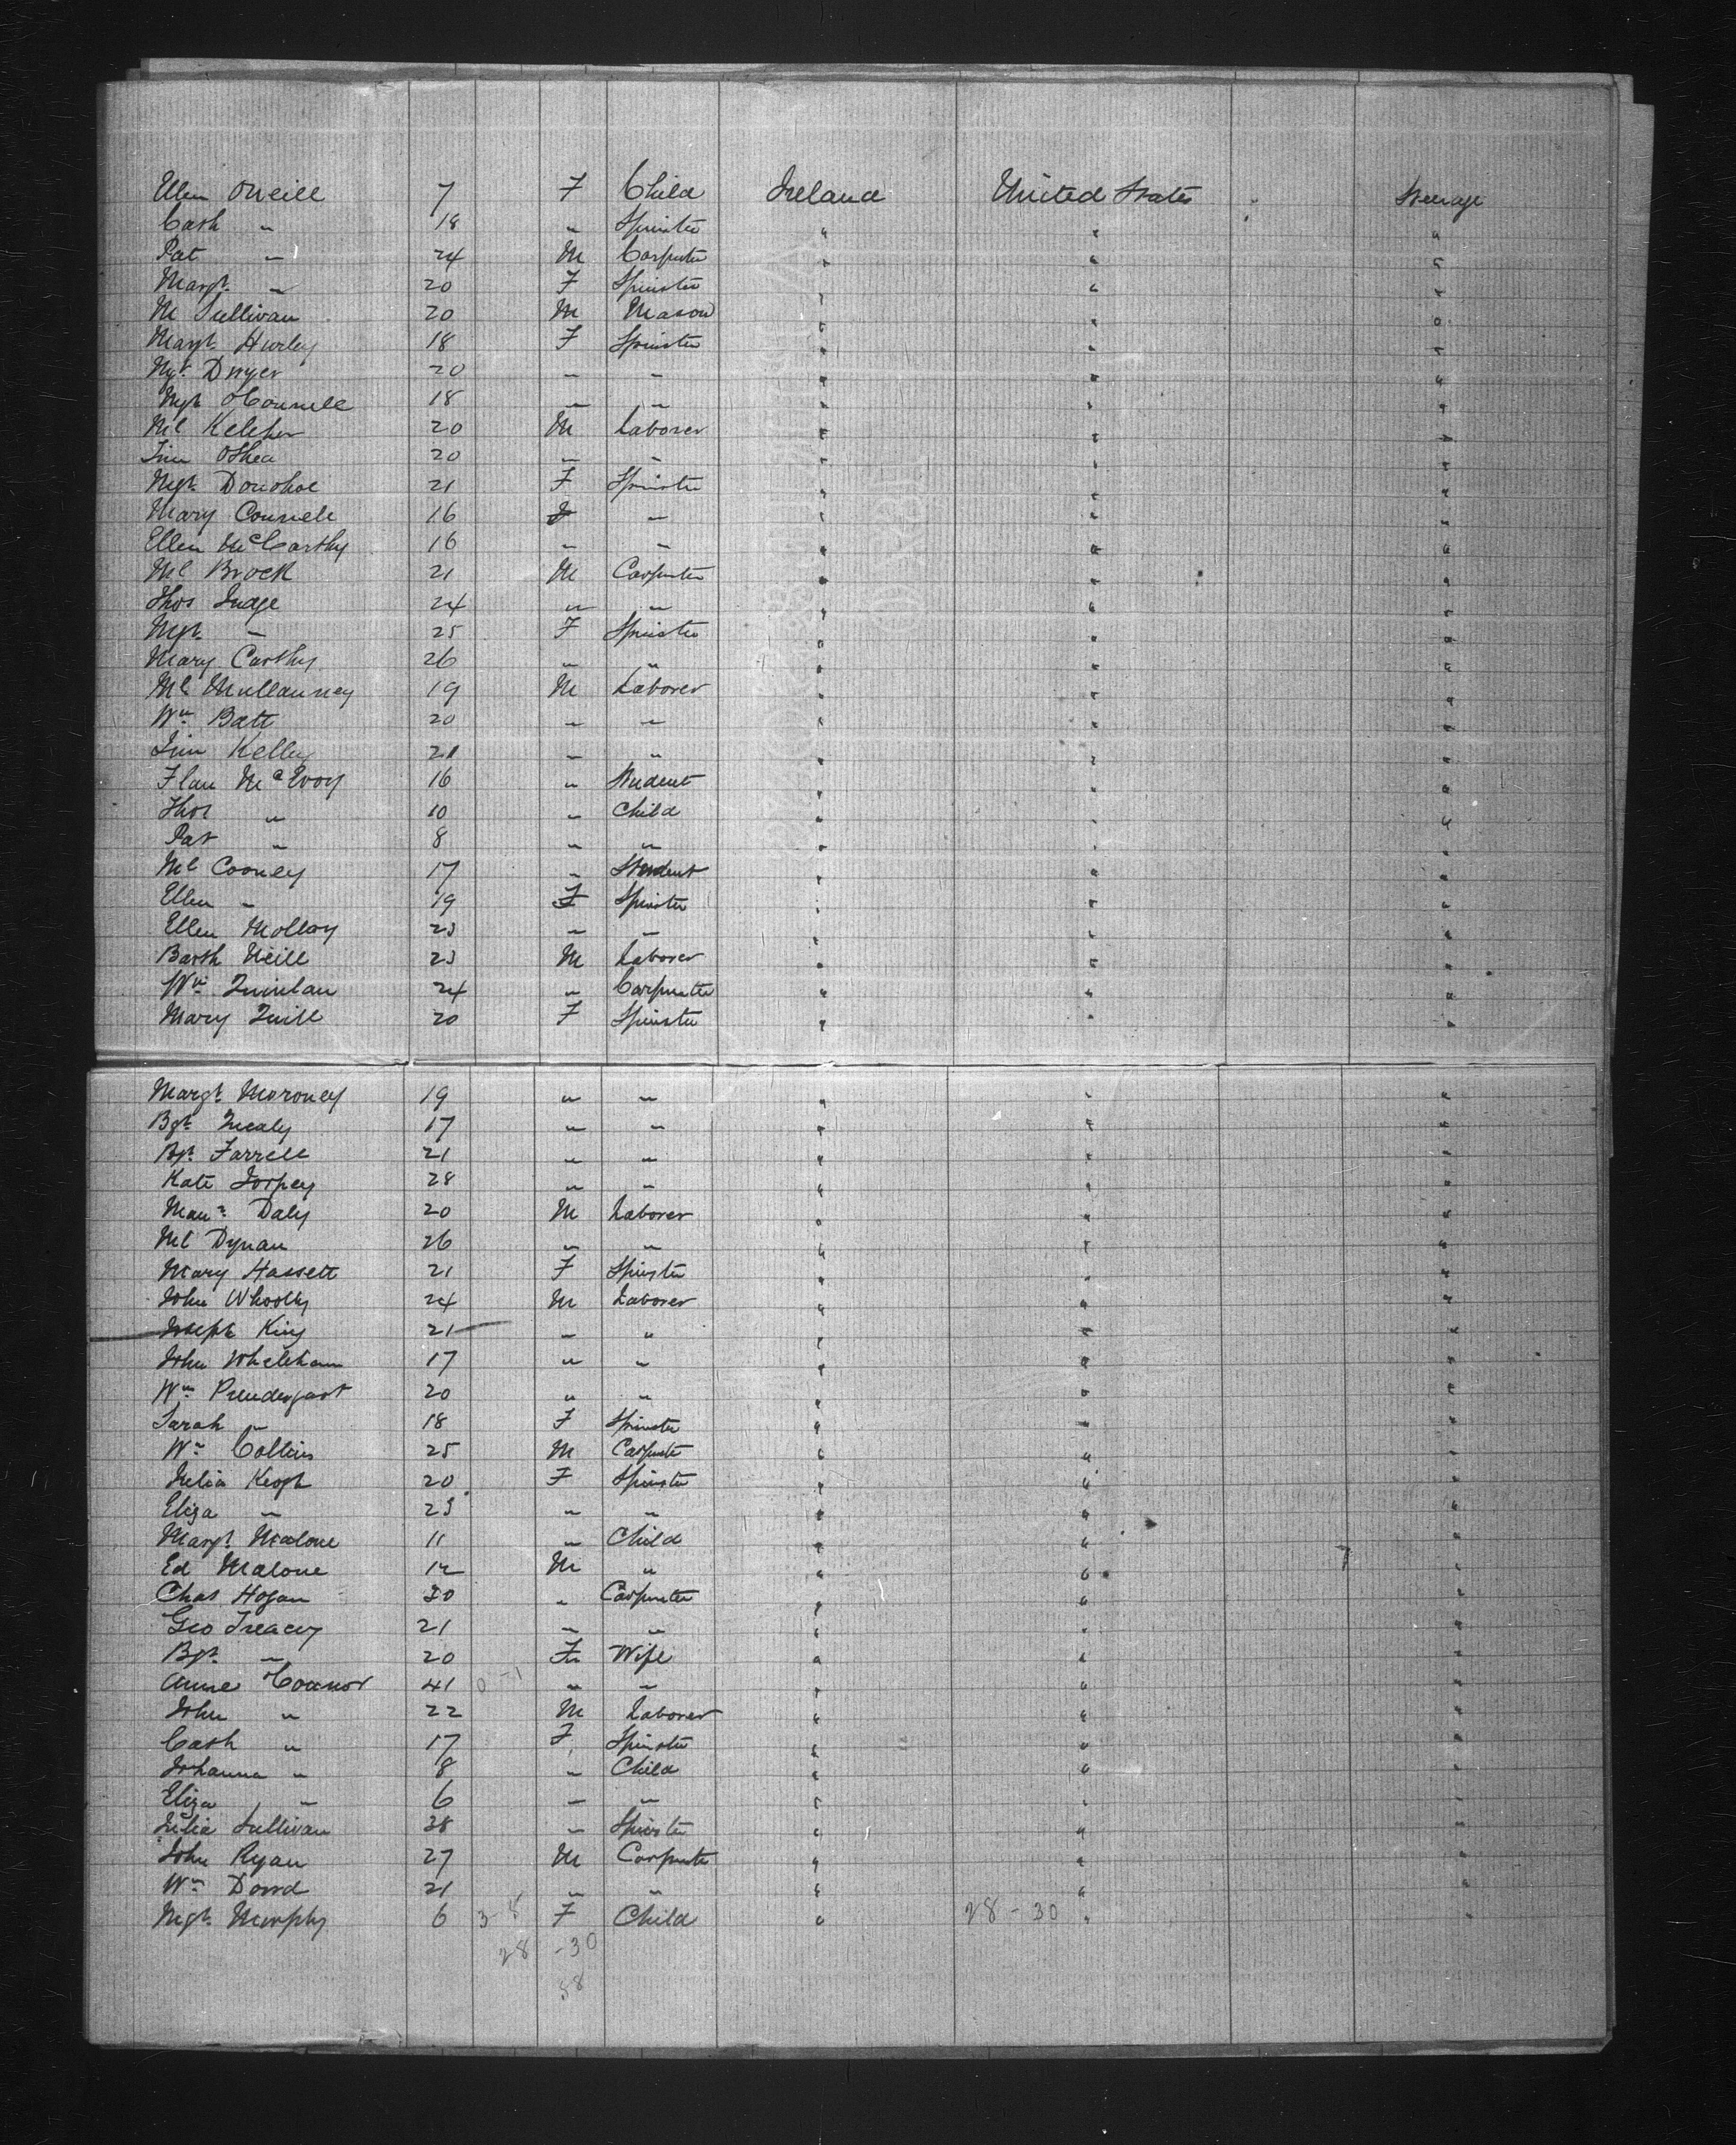 Ellen ONeill 7 F Child Ireland United States Steerage
Cath " 18 " Spinster " " "
Pat " 24 M Carpenter " " "
Margt " 20 F Spinster " " "
M Sullivan 20 M Mason " " "
Margt Hurley 18 F Spinster " " "
Mgt Dwyer 20 " " " " "
Mgt OConnell 18 " " " " "
Ml Keleher 20 M Laborer " " "
Jim OShea 20 " " " " "
Mgt Donohoe 21 F Spinster " " "
Mary Connell 16 F " " " "
Ellen McCarthy 16 " " " " "
Ml Brock 21 M Carpenter " " "
Thos Judge 24 " " " " "
Mgt " 25 F Spinster " " "
Mary Carthy 26 " " " " "
Ml Mullanney 19 M Laborer " " "
Wm Batt 20 " " " " "
Jim Kelley 21 " " " " "
Flan McEvoy 16 " Student " " "
Thos " 10 " Child " " "
Pat " 8 " " " " "
Ml Cooney 17 " Student " " "
Ellen " 19 F Spinster " " "
Ellen Molloy 23 " " " " "
Barth Neill 23 M Laborer " " "
Wm Quinlan 24 " Carpenter " " "
Mary Quill 20 F Spinster " " "
Margt Moroney 19 " " " " "
Bgt Nealy 17 " " " " "
Bgt Farrell 21 " " " " "
Kate Torpey 28 " " " " "
Maur Daly 20 M Laborer " " "
Ml Dynan 26 " " " " "
Mary Hassett 21 F Spinster " " "
John Whooly 24 M Laborer " " "
Joseph King 21 " " " " "
John Whelehan 17 " " " " "
Wm Prendergast 20 " " " " "
Sarah " 18 F Spinster " " "
Wm Collins 25 M Carpenter " " "
Julia Keogh 20 F Spinster " " "
Eliza " 23 " " " " "
Margt Malone 11 " Child " " "
Ed Malone 12 M " " " "
Chas Hogan 30 " Carpenter " " "
Geo Treacy 21 " " " " "
Bgt " 20 F Wife " " "
Anne OConnor 41 0-1 " " " " "
John " 22 M Laborer " " "
Cath " 17 F Spinster " " "
Johanna " 8 " Child " " "
Eliza " 6 " " " " "
Julia Sullivan 28 " Spinster " " "
John Ryan 27 M Carpenter " " "
Wm Dowd 21 " " " " "
Mgt Murphy 6 3-5 F Child " 28-30 " "
28 -30
58